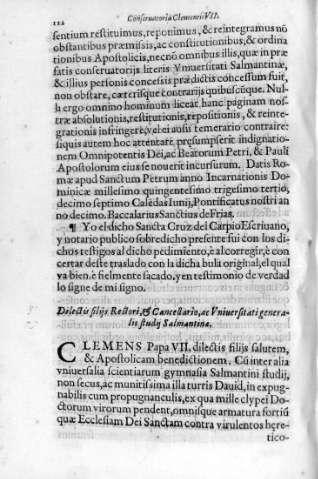 112
Conseruatoria Clementis VII.
sentium restituimus, reponimus, & reintegramus nõ
obstantibus præmissis, ac constitutionibus, & ordina
tionibus Apostolicis, necnõ omnibus illis, quæ in præ
fatis conseruatorijs literis Vniuersitati Salmantinæ,
& illius personis concessis prædictis concessum fuit,
non obstare, cæterisque contrarijs quibuscũque. Nul-
li ergo omnino hominum liceat hanc paginam nos-
træ absolutionis, restitutionis, repositionis, & reinte-
grationis infringere, vel ei ausu temerario contraire:
siquis autem hoc attentare, præsumpserit indignatio-
nem Omnipotentis Dei, ac Beatorum Petri, & Pauli
Apostolorum eius se nouerit incursurum. Datis Ro-
mæ apud Sanctum Petrum anno Incarnationis Do-
minicæ millesimo quingentesimo trigesimo tertio,
decimo septimo Calẽdas Iunij, Pontificatus nostri an
no decimo. Baccalarius Sanctius de Frias.
¶ Yo el dicho Sancta Cruz del Carpio Escriuano,
y notario publico sobredicho presente fui con los di-
chos testigos al dicho pedimiento, è al corregir, è con
certar deste traslado con la dicha bula original, el qual
va bien. è fielmente sacado, y en testimonio de verdad
lo signe de mi signo.
Dilectis filijs Rectori, & Cancellario, ac Vniuersitati genera-
lis studij Salmantina.
CLEMENS Papa VII. dilectis filijs salutem,
& Apostolicam benedictionem. Cũ inter alia
vniuersalia scientiarum gymnasia Salmantini studij,
non secus, ac munitissima illa turris Dauid, in expug-
nabilis cum propugnanculis, ex qua mille clypei Do-
ctorum virorum pendent, omnisque armatura fortiũ
quæ Ecclesiam Dei Sanctam contra virulentos hęre-
tico-